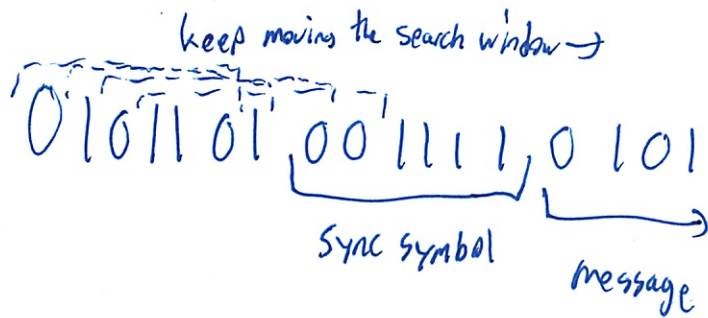 keep moving the search window →
0101101 001111 0101
sync symbol
message